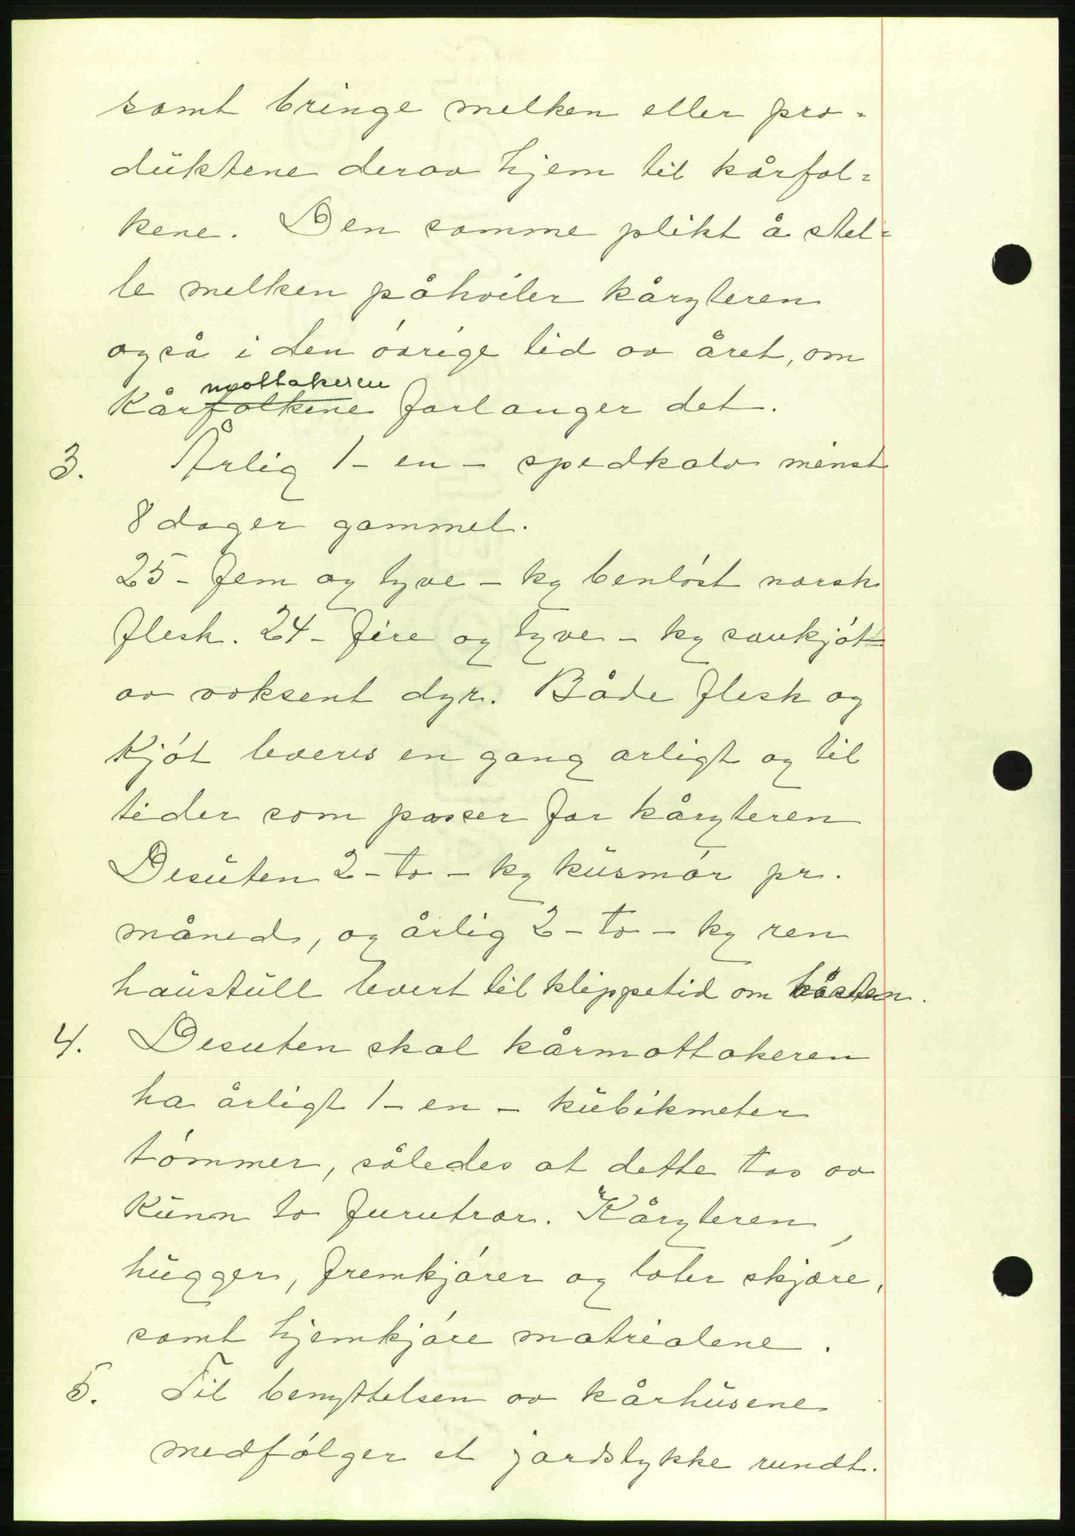 samt bringe melken eller pro-
duktene derav hjem til kårfol-
kene. Den samme plikt å stel-
le melken påhviler kåryteren
også i den övrige tid av året, om
mottakeren
Kårfolkene forlanger det.
3. Årlig 1 - en - spedkalv minst
8 dager gammel.
25 - fem og tyve - kg benlöst norsk
flesk. 24 - fire og tyve - kg saukjöt
av voksent dyr. Både flesk og
Kjöt leveres en gang arligt og til
tider som passer for kåryteren
Desuten 2 - to - kg kusmör pr.
måned, og årlig 2 - to - kg ren
haustull levert til klippetid om hösten.
4. Desuten skal kårmottakeren
ha årligt 1 - en - kubikmeter
tömmer, således at dette tas av
Kunn to furutrær. Kåryteren
hugger, fremkjörer og later skjære,
samt hjemkjöre matrialene.
5. Til benyttelsen av kårhusene
medfölger et jordstykke rundt.